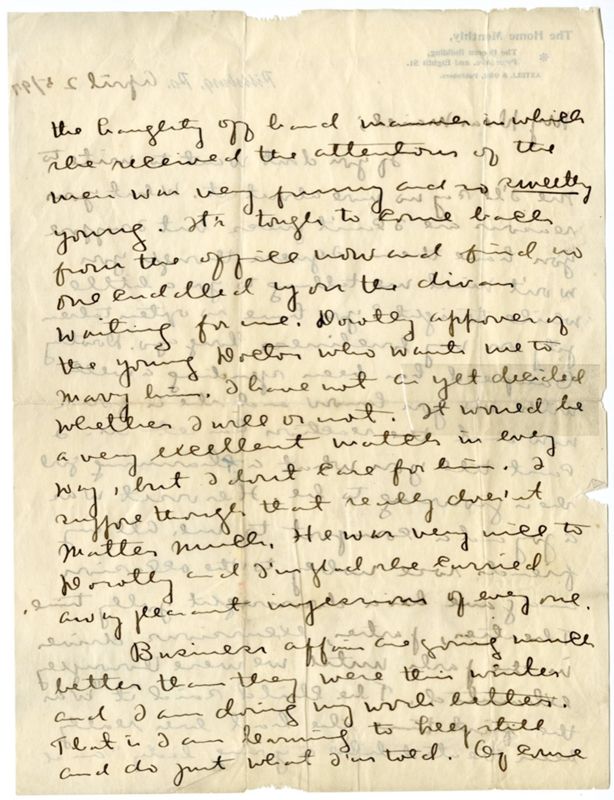 the haughty off hand manner in which
she received the attentions of the
men was very funny and so sweetly
young. It's tough to come back
from the office now and find no
one cuddled up on the divan
waiting for me. Dorothy approves of
the young Doctor who wants me to
marry him. I have not as yet decided
whether I will or not. It would be
a very excellent match in every
way, but I don't care for him. I
suppose though that really does'nt
matter much. He was very nice to
Dorothy and I'm glad she carried
away pleasant impressions of every one.
Business affairs are going much
better than they were this winter
and I am doing my work better.
That is I am learning to keep still
and do just what I'm told. Of course
The Home Monthly,
Pittsburg, Pa. April 25/97